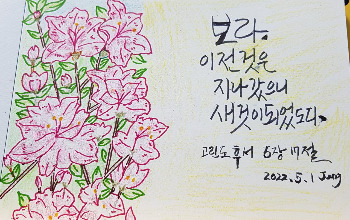 보라.
이전것은
지나갔으니
새것이되었도다.
고린도 후서 5장 17절
2022. 5. 1 Jang